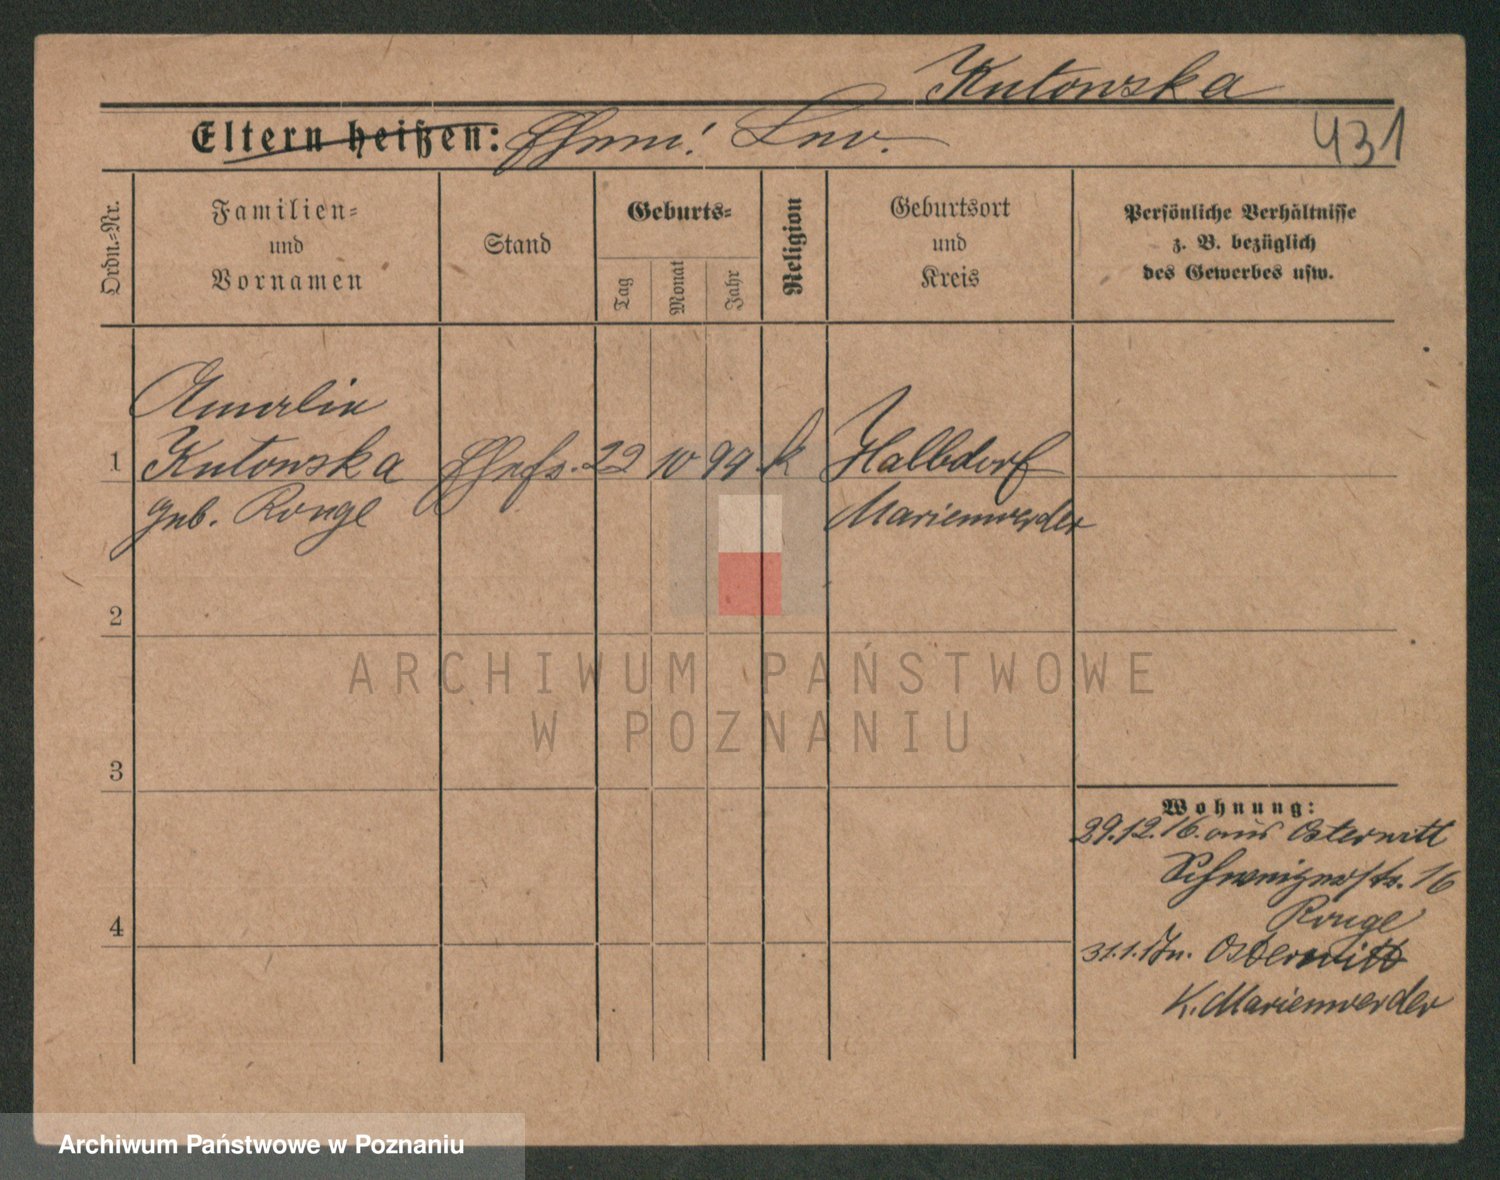 Kutowska
Eltern heißen: Ehem: Leo.
431
Ordn.-Nr.
Familien-
und
Vornamen
Stand
Geburts-
Tag
Monat
Jahr
Religion
Geburtsort
und
Kreis
Persönliche Verhältnisse
z. B. bezüglich
des Gewerbes usw.
Amalie
1 Kutowska Ehefr. 22 10 94 k Halbdorf
geb. Ronge Marienwerder
2
ARCHIWUM PAŃSTWOWE
W POZNANIU
3
Wohnung:
29.12.16. aus Osterwitt
16
4 Ronge
31.1.17 n. Osterwitt
K. Marienwerder
Archiwum Państwowe w Poznaniu